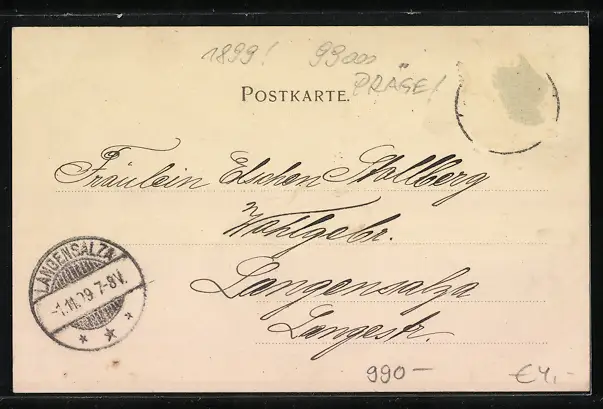 1899! 99000
PRÄGE!
POSTKARTE.
Fräulein Elschen Stollberg
Wohlgebr.
Langensalza
Langestr.
LANGENSALZA
-1.11.99 7-8V.
990-
€4,-